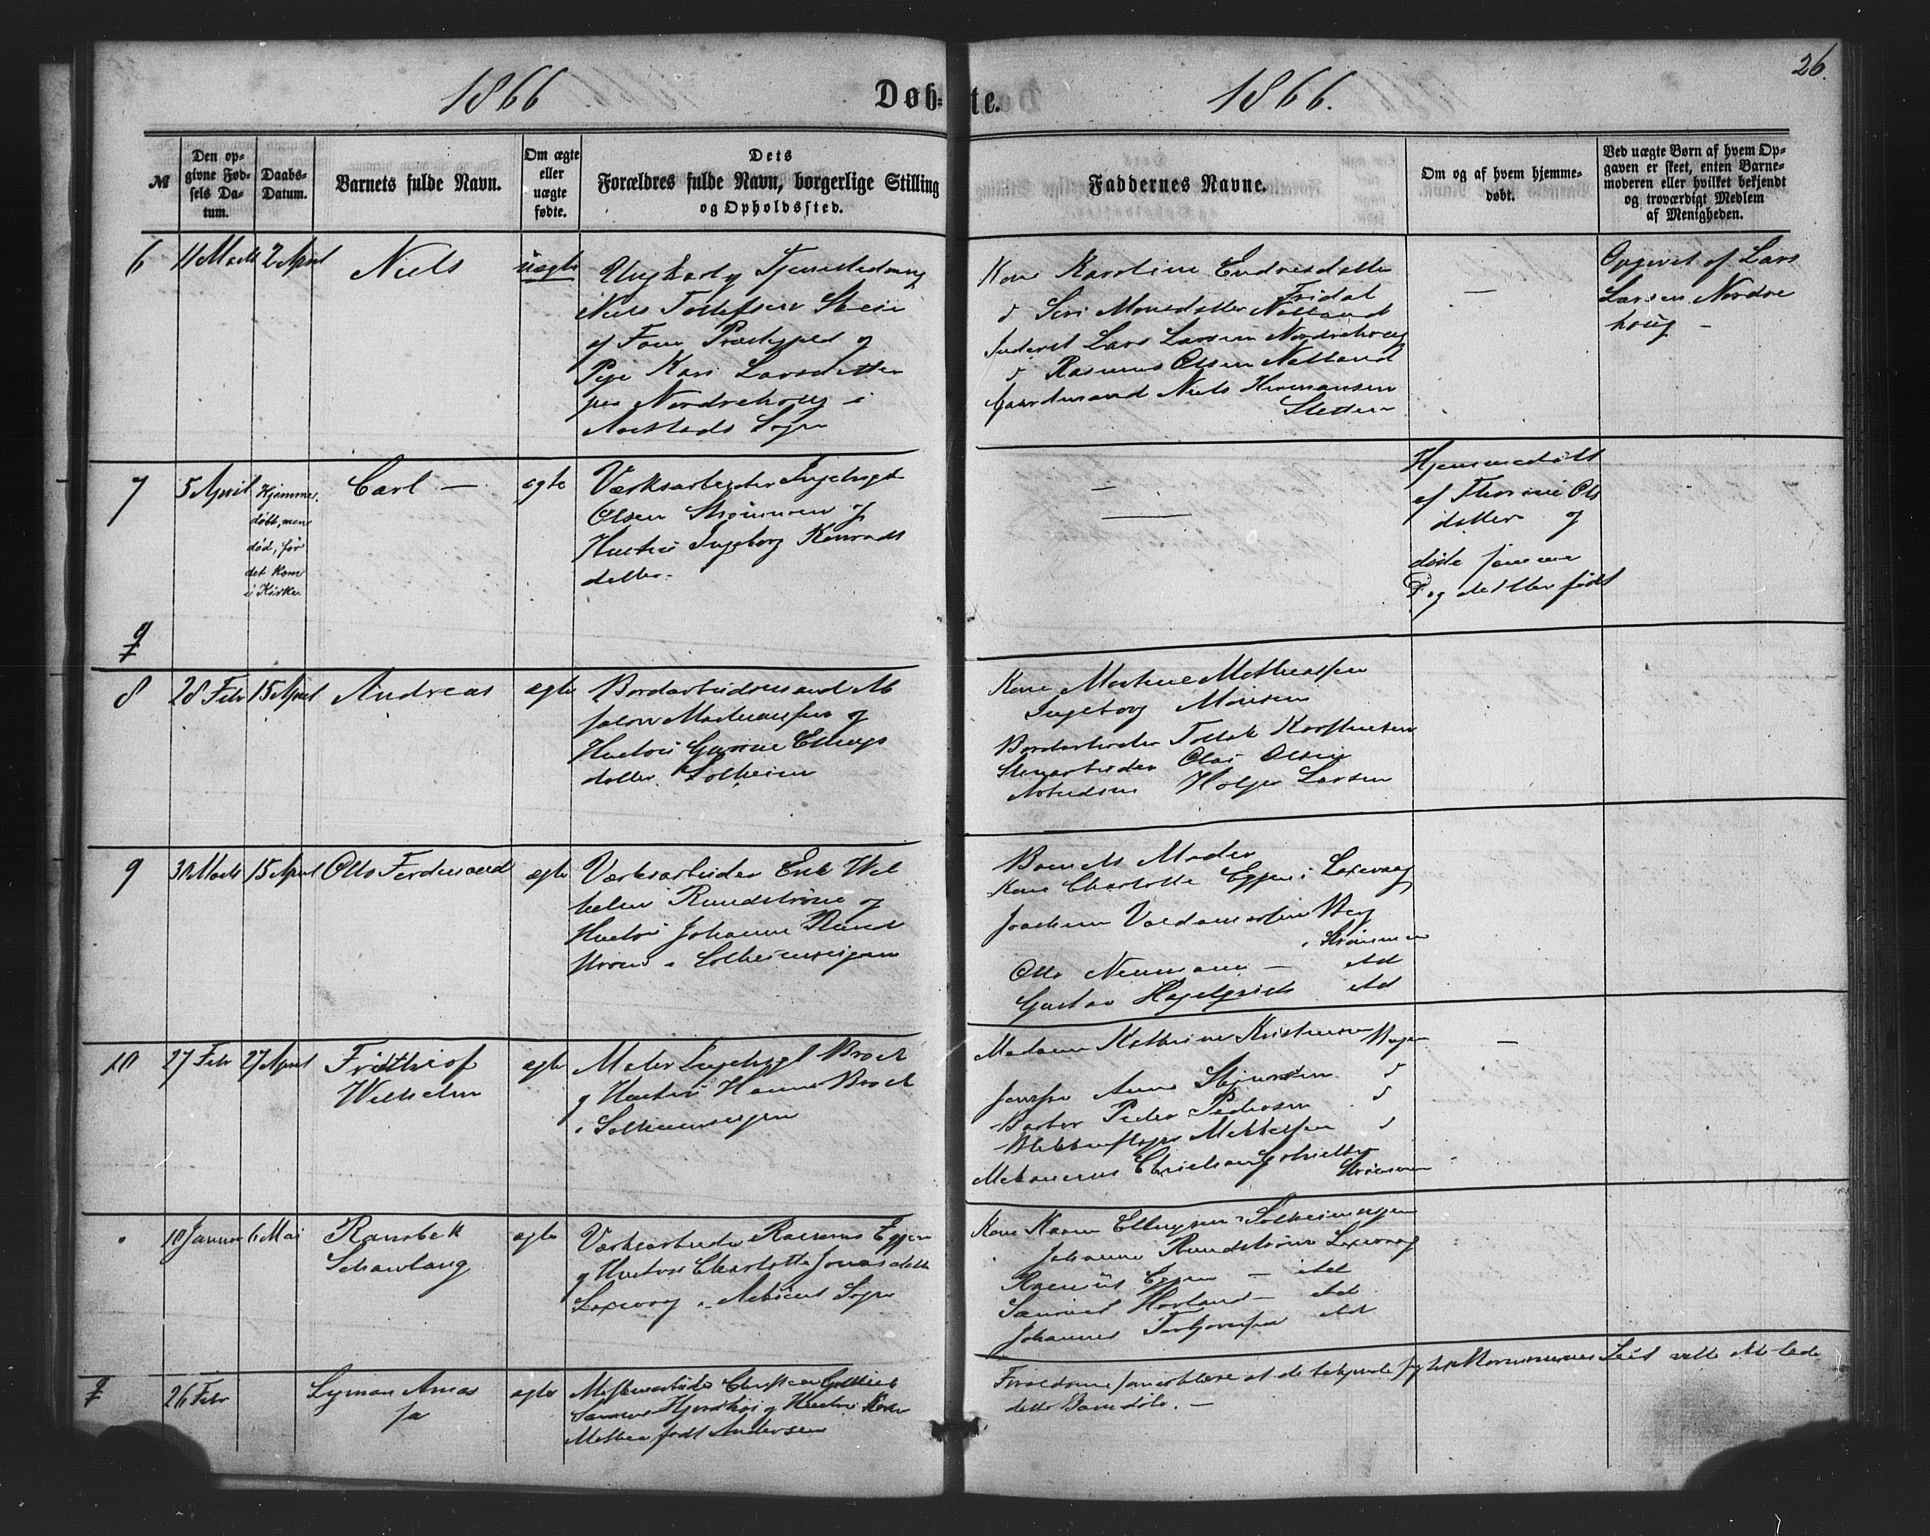 1866 Døb-te. 1866. 26.
№
Den op-
givne Fød-
sels Da-
tum.
Daabs-
Datum.
Barnets fulde Navn.
Om ægte
eller
uægte
fødte.
Dets
Forældres fulde Navn, borgerlige Stilling
og Opholdssted.
Faddernes Navne.
Om og af hvem hjemme-
døbt.
Ved uægte Børn af hvem Op-
gaven er skeet, enten Barne-
moderen eller hvilket bekjendt
og troværdigt Medlem
af Menigheden.
6 11 Marts 2 April Niels uægte
Ungkarl og Tjenestedreng
Niels Tollefsen Steie
af Fane Præstegjeld og
Pige Kari Larsdatter
paa Nordrehoug i
Aarstads Sogn
Kone Karoline Endresdatter
Fridal
d Siri Monsdatter Natland
Inderst Lars Larsen Nordrehoug
d Rasmus Olsen Natland
Gaardmand Niels Hermansen
Sletten
—
Opgivet af Lars
Larsen Nordre
houg —
7 5 April
Hjemme-
døbt, men
død, før
det kom
i Kirke
Carl — ægte
Værksarbeider Ingebrigt
Olsen Strømmen og
Hustru Ingeborg Konrads
datter.
—
Hjemmedøbt
af Thorine Ols
datter og
døde samme
Dag det blev født
8 28 Febr 15 April Andreas ægte
Bordarbeidsmand Ab
salon Mathiassen og
Hustru Gurine Ellings
datter Solheim
Kone Martine Mathiassen
Ingeborg Monsen
Bordarbeider Tollak Knophensen
Stenarbeider Olai Olsen
Arbeidsm Holger Larsen
9 30 Marts 15 April Otto Ferdinand ægte
Værksarbeider Erik Wil
helm Rundstrøm og
Hustru Johanne Rund
strøm i Solheimsvigen
Barnets Moder
Kone Charlotte Eggen i Laxevaag
Joachim Valdemarsen Berg
i Strømmen
Otto Neumann — std
Gustav Hagelqvist std
10 27 Febr 27 April
Frithiof
Wilhelm
ægte
Maler Ingebrigt Brock
og Hustru Hanne Brock
i Solheimsvigen
Madame Kathrine Kristensen Bergen
Jomfru Anna Stjernsen d
Barber Peder Pedersen d
Blikkenslager Mathiesen d
Mekanikus Christian Gotlieb
Strømmen
—
10 Januar 6 Mai
Rambek
Schawlang
ægte
Værksarbeider Rasmus Eggen
og Hustru Charlotte Jonasdatter
Laxevaag i Askøens Sogn
Kone Karen Ellingsen Solheimsvigen
Johanne Rundstrøm Laxevaag
Rasmus Eggen — std
Samuel Havland — std
Johannes Torgersen std
26 Febr Lyman Amas
ægte
Christian Gottlieb
og Hustru Karen
Mathea født Andersen
Forældrene
dette Barn døbe. —